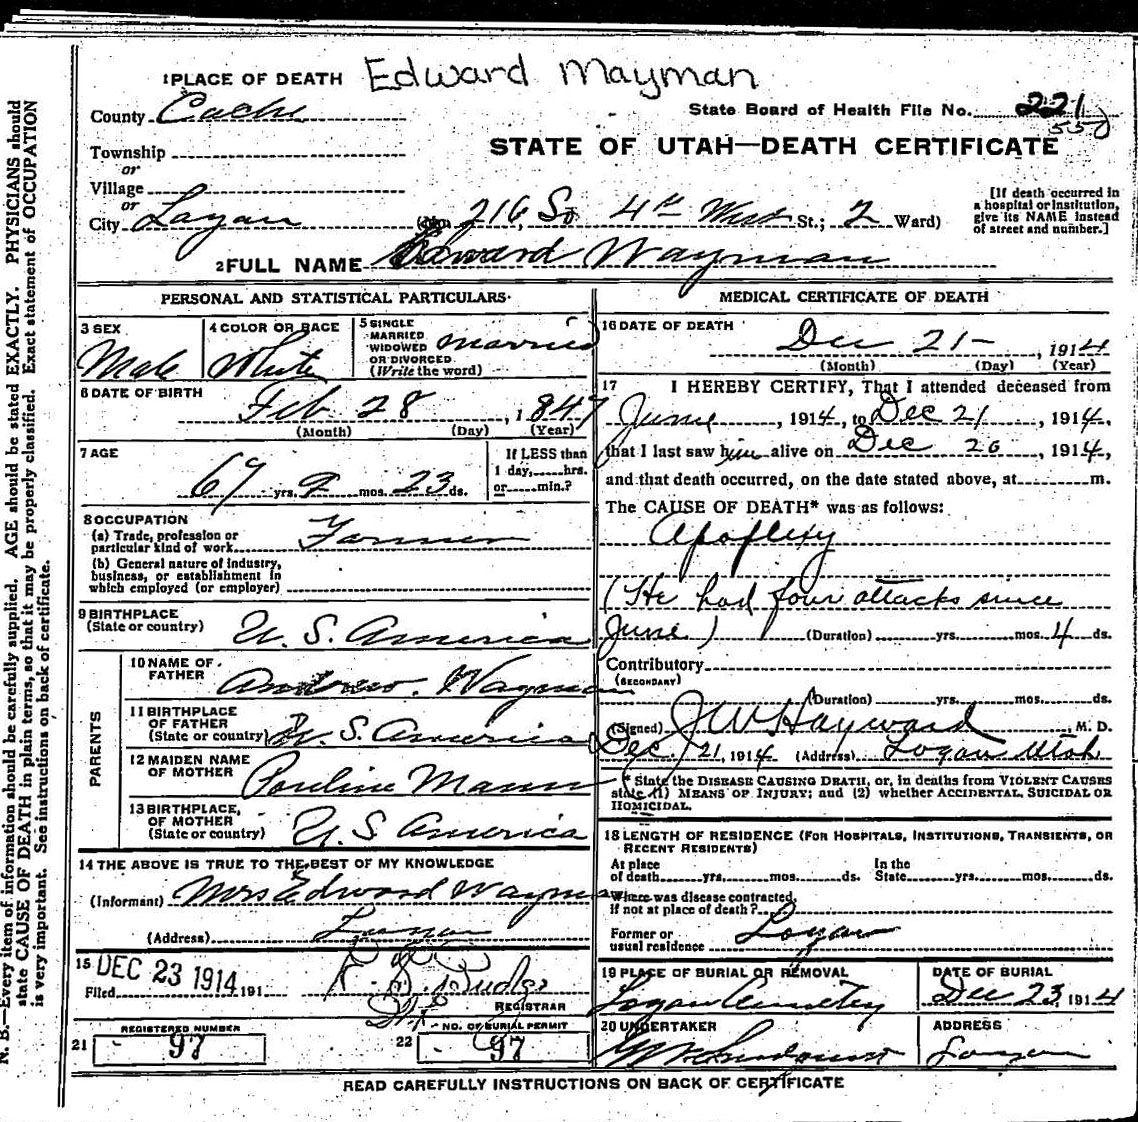 1 PLACE OF DEATH Edward Mayman
County Cache
State Board of Health File No. 221
550
Township
or
Village
or
City Logan (No. 216 So 4th West St.; 2 Ward)
STATE OF UTAH—DEATH CERTIFICATE
[If death occurred in
a hospital or institution,
give its NAME instead
of street and number.]
2 FULL NAME Edward Wayman
PERSONAL AND STATISTICAL PARTICULARS
3 SEX
Male
4 COLOR OR RACE
White
5 SINGLE
MARRIED
WIDOWED
OR DIVORCED
(Write the word)
Married
6 DATE OF BIRTH
Feb 28, 1847
(Month) (Day) (Year)
7 AGE
67 yrs. 9 mos. 23 ds.
If LESS than
1 day,......hrs.
or......min.?
8 OCCUPATION
(a) Trade, profession or
particular kind of work Farmer
(b) General nature of industry,
business, or establishment in
which employed (or employer)
9 BIRTHPLACE
(State or country) U. S. America
PARENTS
10 NAME OF
FATHER Andrew Wayman
11 BIRTHPLACE
OF FATHER
(State or country) U. S. America
12 MAIDEN NAME
OF MOTHER Pauline Mann
13 BIRTHPLACE
OF MOTHER
(State or country) U. S America
14 THE ABOVE IS TRUE TO THE BEST OF MY KNOWLEDGE
(Informant) Mrs Edward Wayman
(Address) Logan
15 DEC 23 1914
Filed 191
REGISTRAR
21 REGISTERED NUMBER
97
22 NO. OF BURIAL PERMIT
97
MEDICAL CERTIFICATE OF DEATH
16 DATE OF DEATH
Dec 21—, 1914
(Month) (Day) (Year)
17 I HEREBY CERTIFY, That I attended deceased from
June, 1914, to Dec 21, 1914,
that I last saw him alive on Dec 20, 1914,
and that death occurred, on the date stated above, at m.
The CAUSE OF DEATH* was as follows:
Apoplexy
(He had four attacks since
June) (Duration) yrs. mos. 4 ds.
Contributory
(SECONDARY)
(Duration) yrs. mos. ds.
(Signed) J W Hayward M. D.
Dec. 21, 1914 (Address) Logan Utah
* State the DISEASE CAUSING DEATH, or, in deaths from VIOLENT CAUSES
state (1) MEANS OF INJURY; and (2) whether ACCIDENTAL, SUICIDAL OR
HOMICIDAL.
18 LENGTH OF RESIDENCE (FOR HOSPITALS, INSTITUTIONS, TRANSIENTS, OR
RECENT RESIDENTS)
At place
of death yrs. mos. ds.
In the
State yrs. mos. ds.
Where was disease contracted,
if not at place of death?
Former or
usual residence Logan
19 PLACE OF BURIAL OR REMOVAL
Logan Cemetery
DATE OF BURIAL
Dec 23, 1914
20 UNDERTAKER
ADDRESS
Logan
READ CAREFULLY INSTRUCTIONS ON BACK OF CERTIFICATE
N. B.—Every item of information should be carefully supplied. AGE should be stated EXACTLY. PHYSICIANS should
state CAUSE OF DEATH in plain terms, so that it may be properly classified. Exact statement of OCCUPATION
is very important. See instructions on back of certificate.